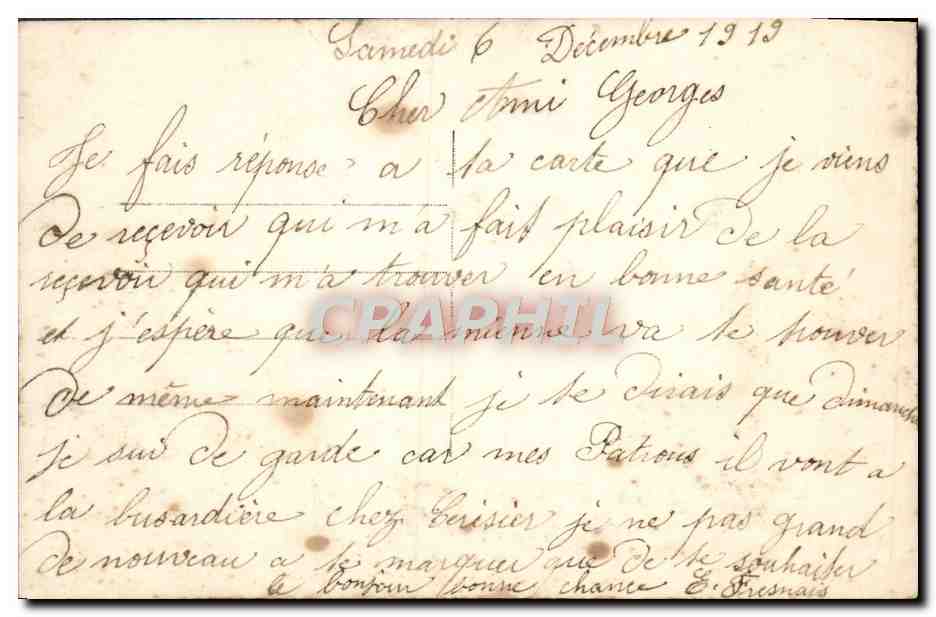 Samedi 6 Décembre 1919
Cher Ami Georges
Je fais réponse a ta carte que je viens
de reçevoir qui m'a fait plaisir de la
reçevoir qui m'a trouver en bonne santé
et j'espère que la mienne va te trouver
de même maintenant je te dirais que dimanche
je suis de garde car mes Patrons il vont a
la busardière chez Cerisier je ne pas grand
de nouveau a te marquer que de te souhaiter
le bonjour bonne chance E. Fresnais
CPAPHIL